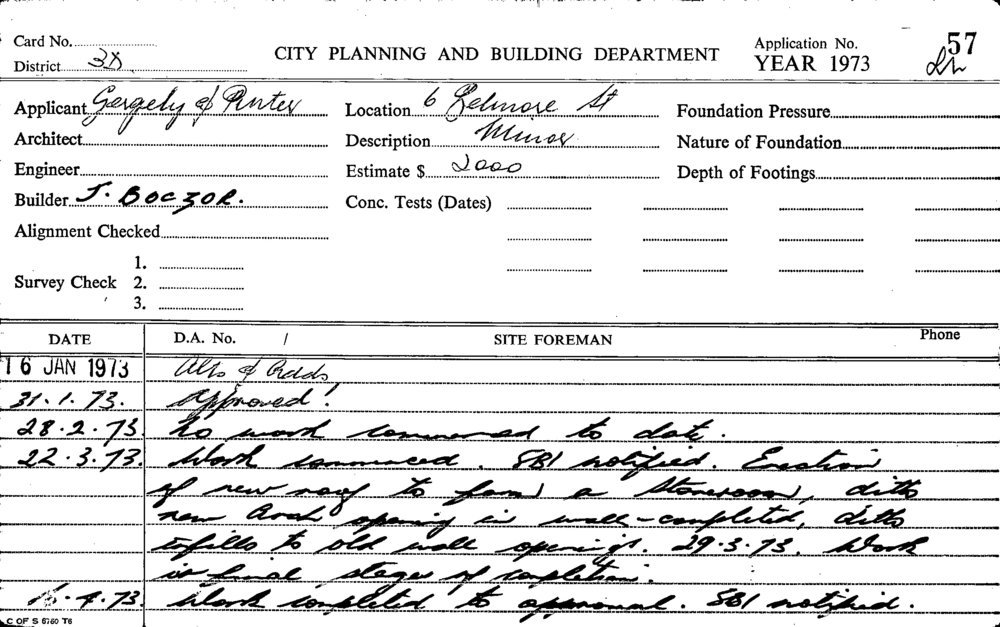 Card No.
District 3X
CITY PLANNING AND BUILDING DEPARTMENT
Application No. 57
YEAR 1973
Applicant Gergely & Pinter
Location 6 St
Foundation Pressure
Architect
Description Minor
Nature of Foundation
Engineer
Estimate $ 2000
Depth of Footings
Builder J. BOCZOR.
Conc. Tests (Dates)
Alignment Checked
Survey Check 1.
2.
3.
DATE D.A. No. / SITE FOREMAN Phone
16 JAN 1973 Alts & Adds
31.1.73. Approved!
28.2.73. No work commenced to date.
22.3.73. Work commenced. SBI notified. Erection
of new roof to form a Storeroom, ditto
new Arch opening in wall-completed, ditto
infills to old wall openings. 29.3.73. Work
in final stages of completion.
4.73. Work completed to approval. SBI notified.
C OF S 6760 T6